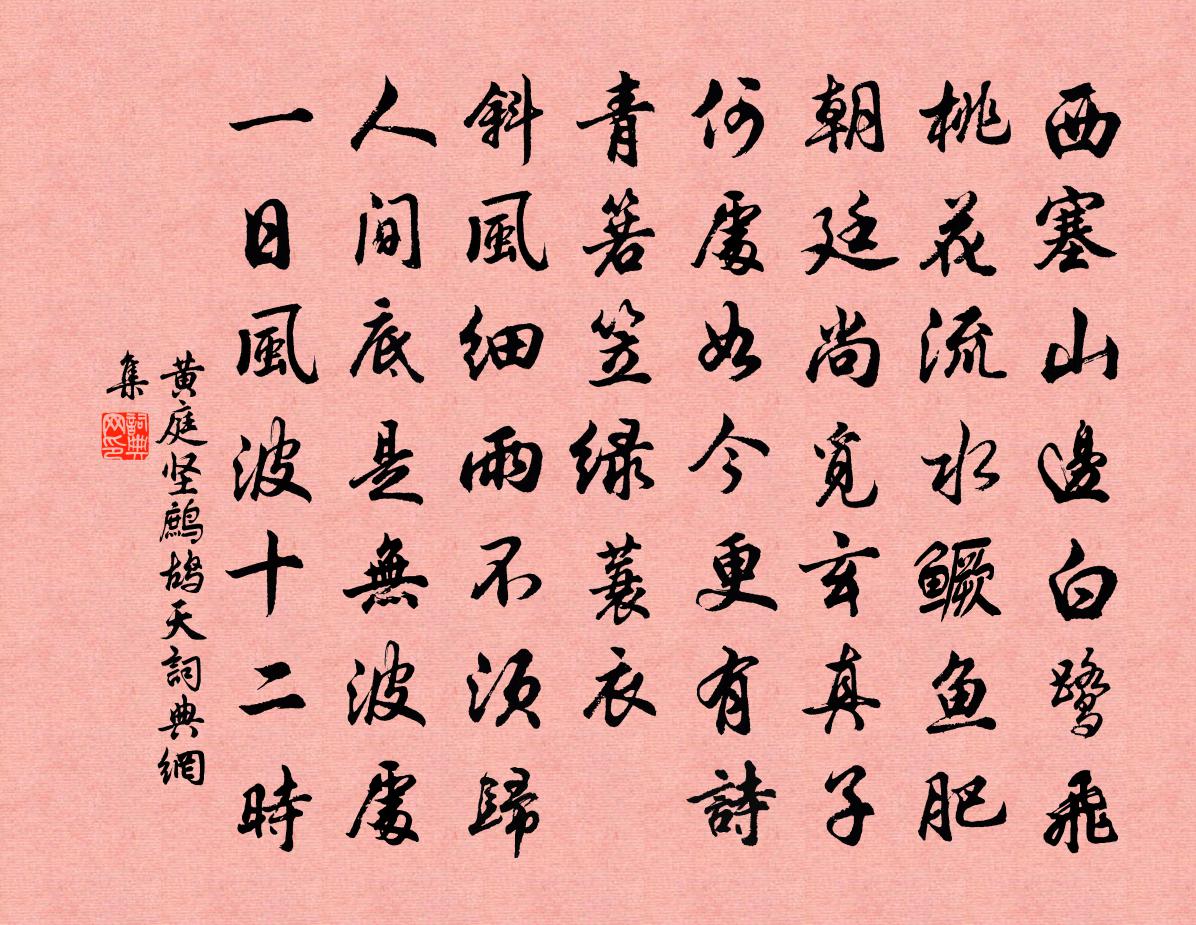 西塞山邊白鷺飛
桃花流水鱖鱼肥
朝廷尚覓玄真子
何處如今更有詩
青箬笠綠蓑衣
斜風細雨不須歸
人間底是無波處
一日風波十二時
黄庭坚鷓鴣天詞典網
集
詞典
网印